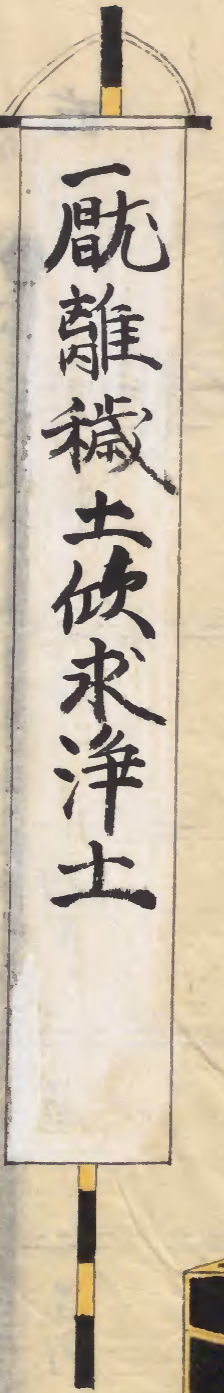 厭離穢土欣求浄土